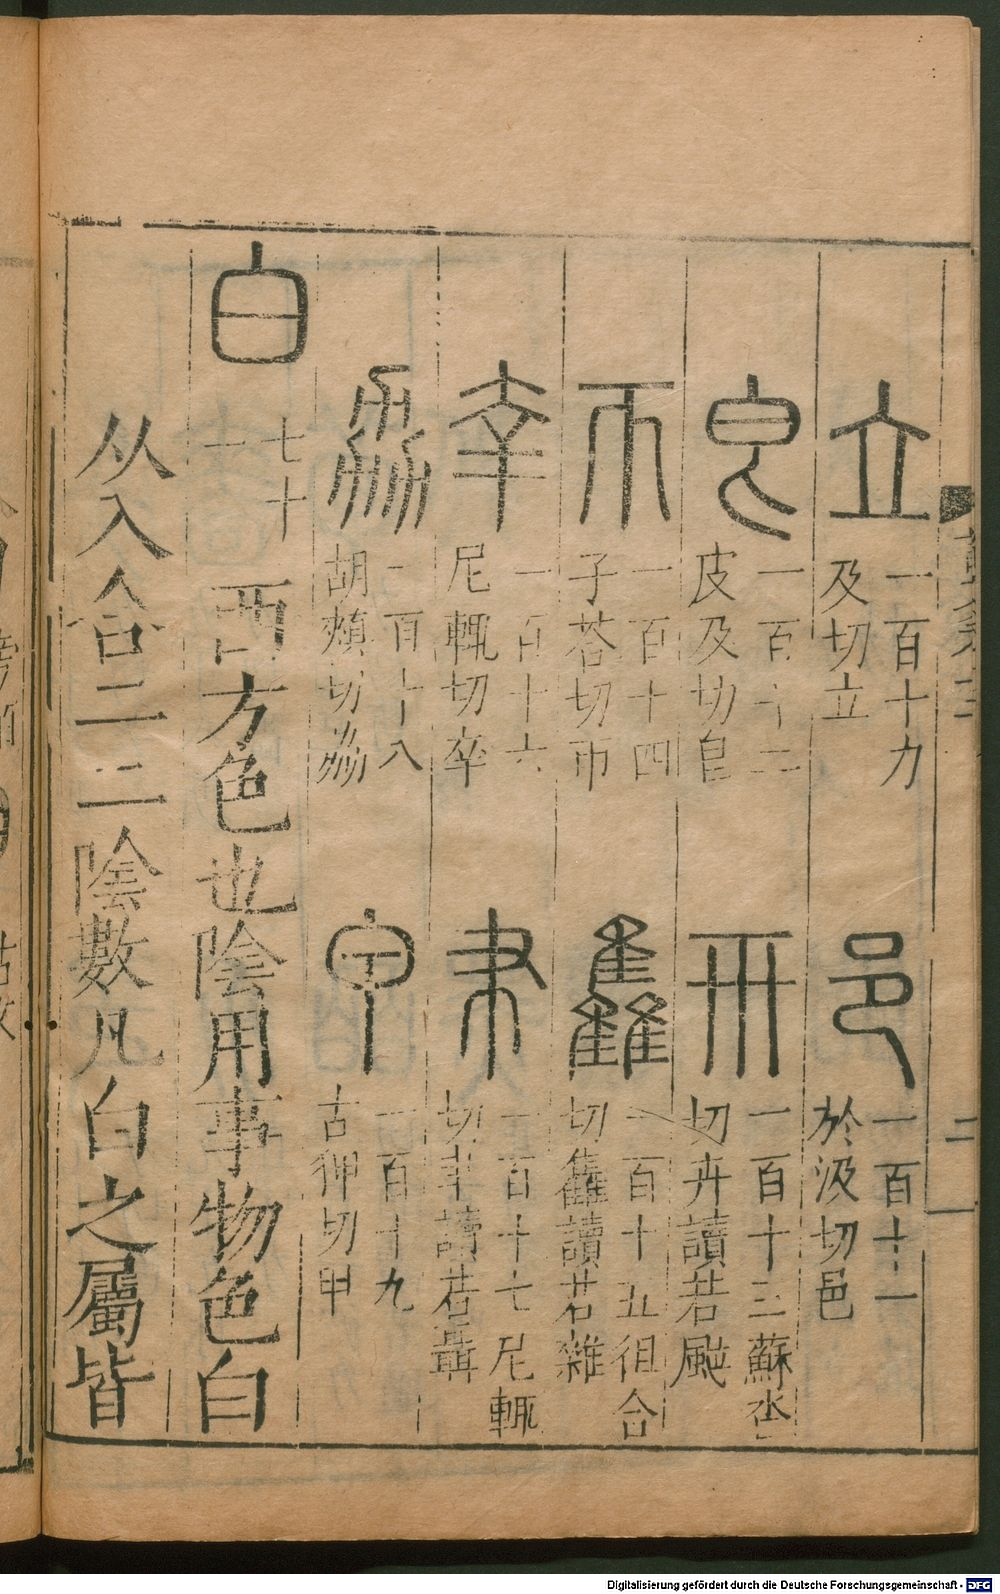 立 一百十 及切立
邑 一百十一 於汲切邑
皀 一百十二 皮及切皀
卅 一百十三 蘇沓切卉讀若颯
帀 一百十四 子荅切帀
雥 一百十五 徂合切雥讀若雜
㚔 一百十六 尼輒切㚔
𦘒 一百十七 尼輒切𦘒讀若聶
劦 一百十八 胡頰切劦
甲 一百十九 古狎切甲
白 七十一 西方色也陰用事物色白
从入合二二陰數凡白之屬皆
二
Digitalisierung gefördert durch die Deutsche Forschungsgemeinschaft - DFG